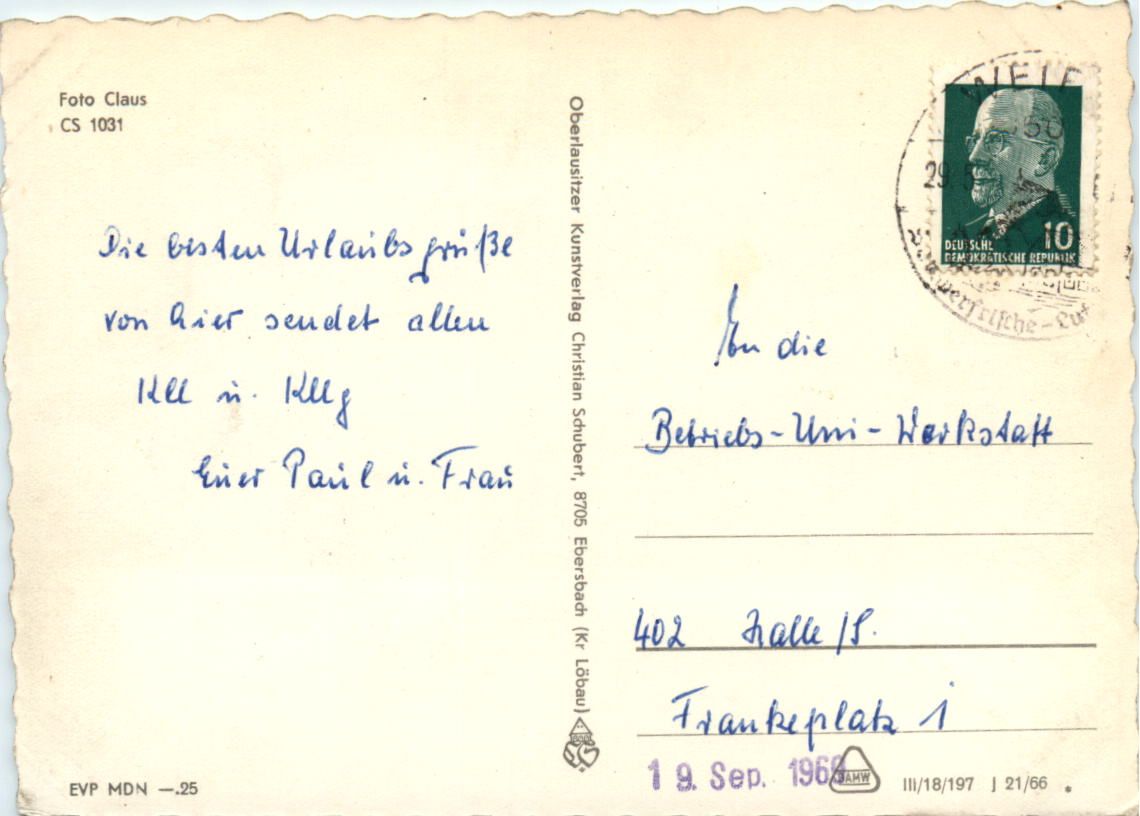 Foto Claus
CS 1031
Die besten Urlaubsgrüße
von hier sendet allen
Kll u. Kllg
Euer Paul u. Frau
EVP MDN —.25
Oberlausitzer Kunstverlag Christian Schubert, 8705 Ebersbach (Kr Löbau)
29. 5
DEUTSCHE
DEMOKRATISCHE REPUBLIK
10
An die
Betriebs-Uni-Werkstatt
402 Halle/S.
Frankeplatz 1
19. Sep. 1968
DAMW
III/18/197 J 21/66